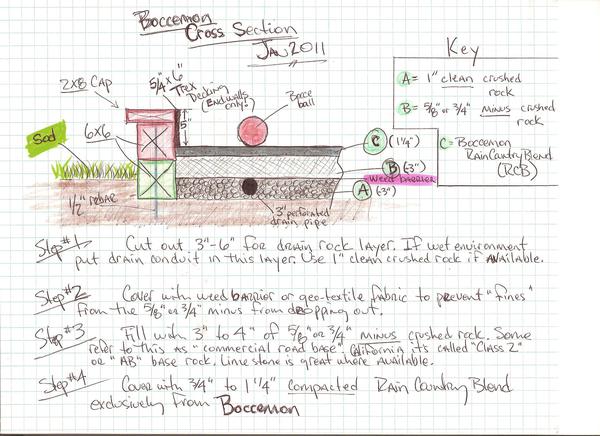 Boccemon
Cross Section
Jan 2011
Key
A = 1" clean crushed
rock
B = 5/8" or 3/4" minus crushed
rock
C = Boccemon
Rain Country Blend
(RCB)
2x8 CAP
5/4" x 6"
Trex
Decking
(Endwalls
only!)
5"
Bocce
ball
6x6
Sod
C (1 1/4")
B (~3")
weed barrier
A (~3")
1/2" rebar
3" perforated
drain pipe
Step #1 Cut out 3"-6" for drain rock layer. If wet environment
put drain conduit in this layer. Use 1" clean crushed rock if available.
Step #2 Cover with weed barrier or geo-textile fabric to prevent "fines"
from the 5/8" or 3/4" minus from dropping out.
Step #3 Fill with 3" to 4" of 5/8" or 3/4" minus crushed rock. Some
refer to this as "commercial road base". California it's called "Class 2"
or "AB" base rock. Limestone is great where available.
Step #4 Cover with 3/4" to 1 1/4" compacted Rain Country Blend
exclusively from Boccemon